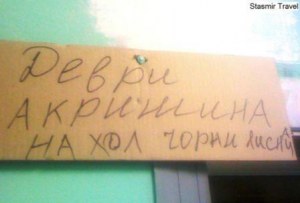 Stasmir Travel
Деври
Акрижина
на хол чорни листй